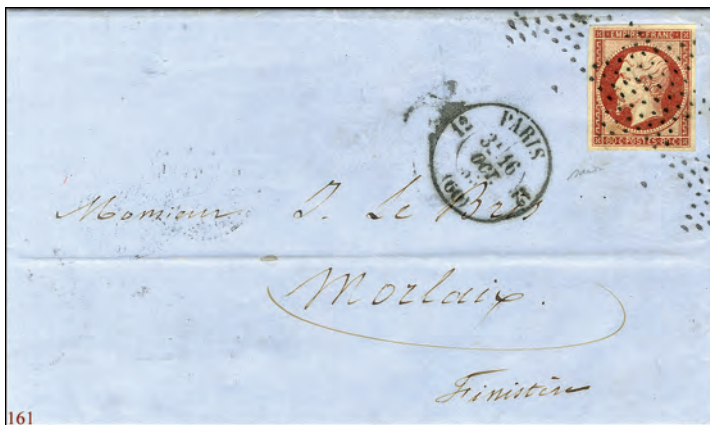 EMPIRE FRANC
80·C·POSTES·80·C
12 PARIS 12
3E 16
OCT
(60)
Monsieur J. Le Bris
Morlaix.
Finistère
161